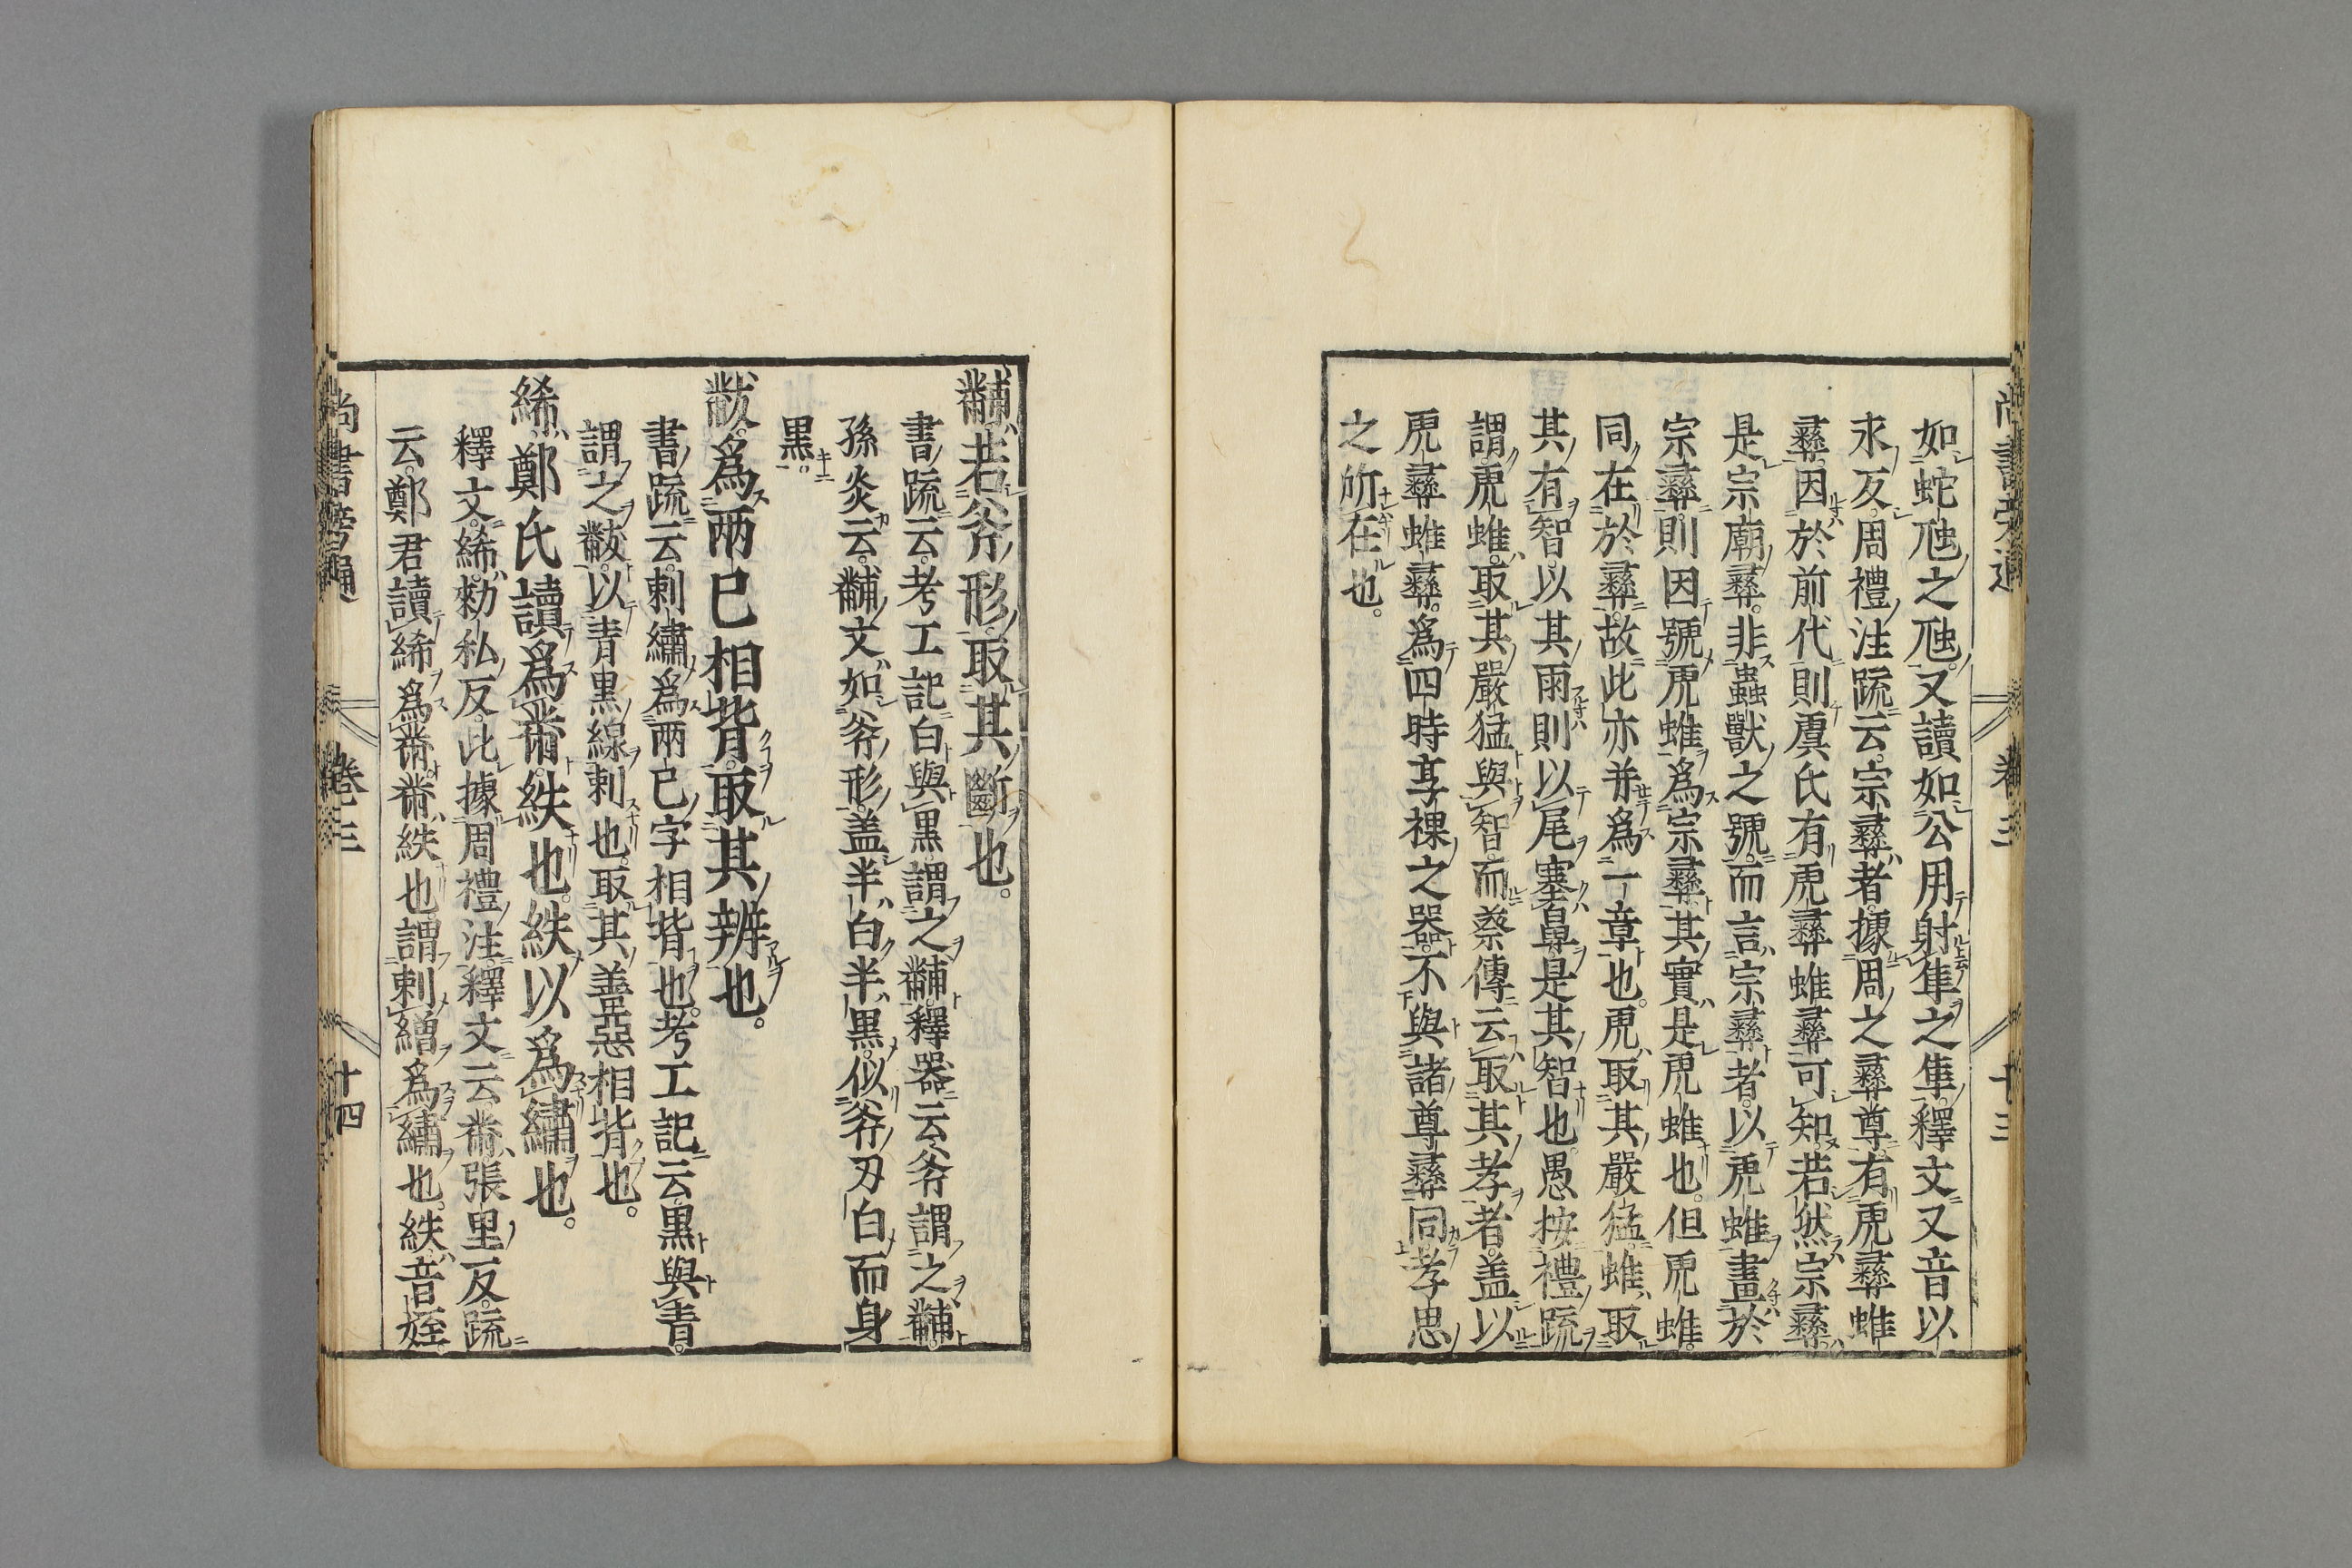 如蛇虺之虺又讀如公用射隼之隼釋文又音以
求反周禮注疏云宗彝者據周之彝尊有虎彝蜼
彝因於前代則虞氏有虎彝蜼彝可知若然宗彝
是宗廟彝非蟲獸之號而言宗彝者以虎蜼畫於
宗彝則因號虎蜼爲宗彝其實是虎蜼也但虎蜼
同在於彝故此亦并爲一章也虎取其嚴猛蜼取
其有智以其雨則以尾塞鼻是其智也愚按禮疏
謂虎蜼取其嚴猛與智而蔡傳云取其孝者盖以
虎彝蜼彝爲四時享祼之器不與諸尊彝同孝思
之所在也。
尚書旁通 卷三 十三
黼若斧形取其斷也。
書疏云考工記白與黒謂之黼釋器云斧謂之黼
孫炎云黼文如斧形盖半白半黒似斧刃白而身
黒。
黻爲兩已相背取其辨也。
書疏云刺繡爲兩已字相背也考工記云黒與青
謂之黻以青黒線刺也取其善惡相背也。
絺鄭氏讀爲黹紩也紩以爲繡也。
釋文絺勑私反此據周禮注釋文云黹張里反疏
云鄭君讀絺爲黹黹紩也謂刺繒爲繡也紩音姪。
尚書旁通 卷三 十四